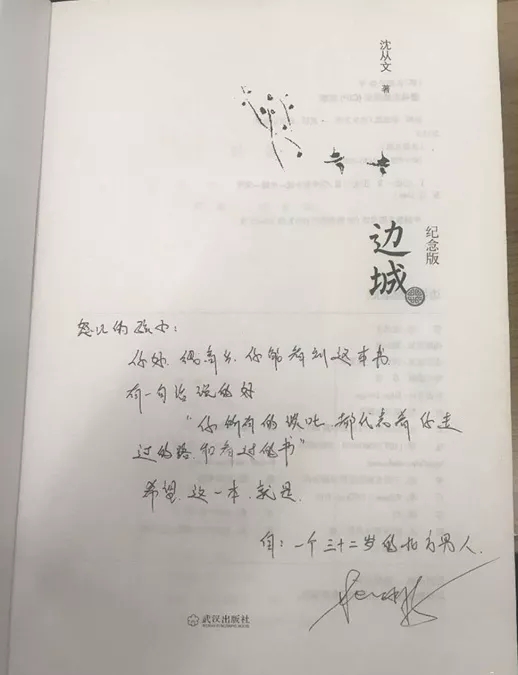 沈从文 著
纪念版
边城
你好,偶育者,你能看到这本书
有一句话说的好
"你所有的谈吐 都代表着你走
过的路和看过的书"
希望,这一本,就是.
自:一个三十二岁的北方男人.
武汉出版社